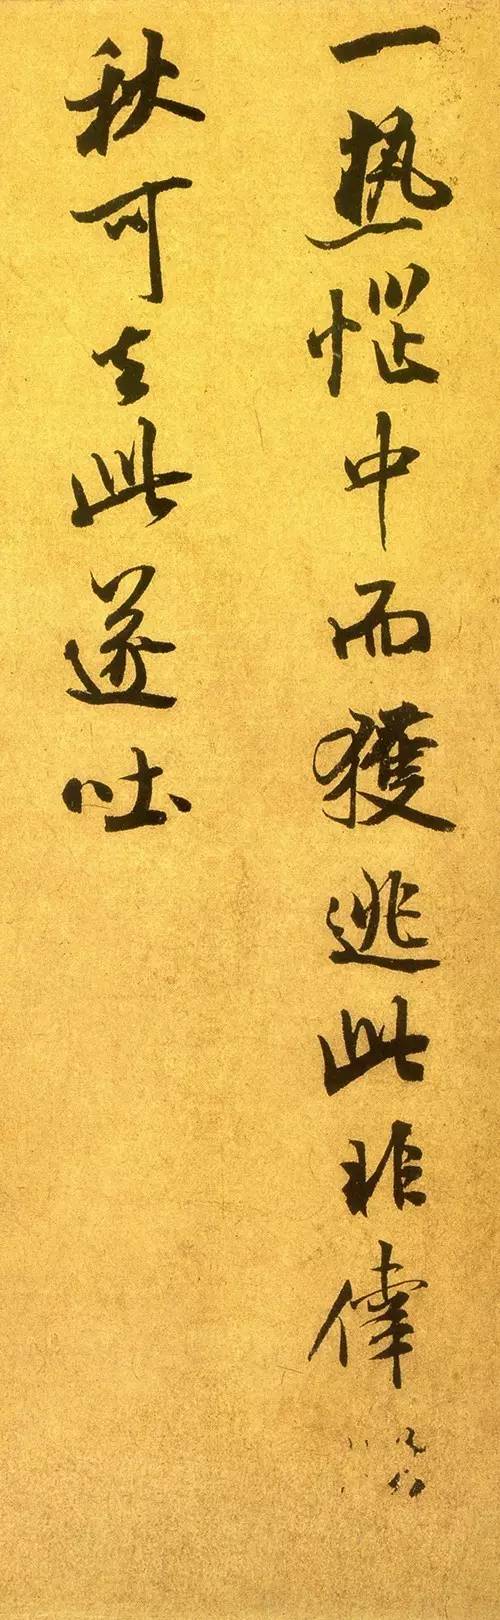 一熱惱中而獲逃此非倖
秋可去此遂吐